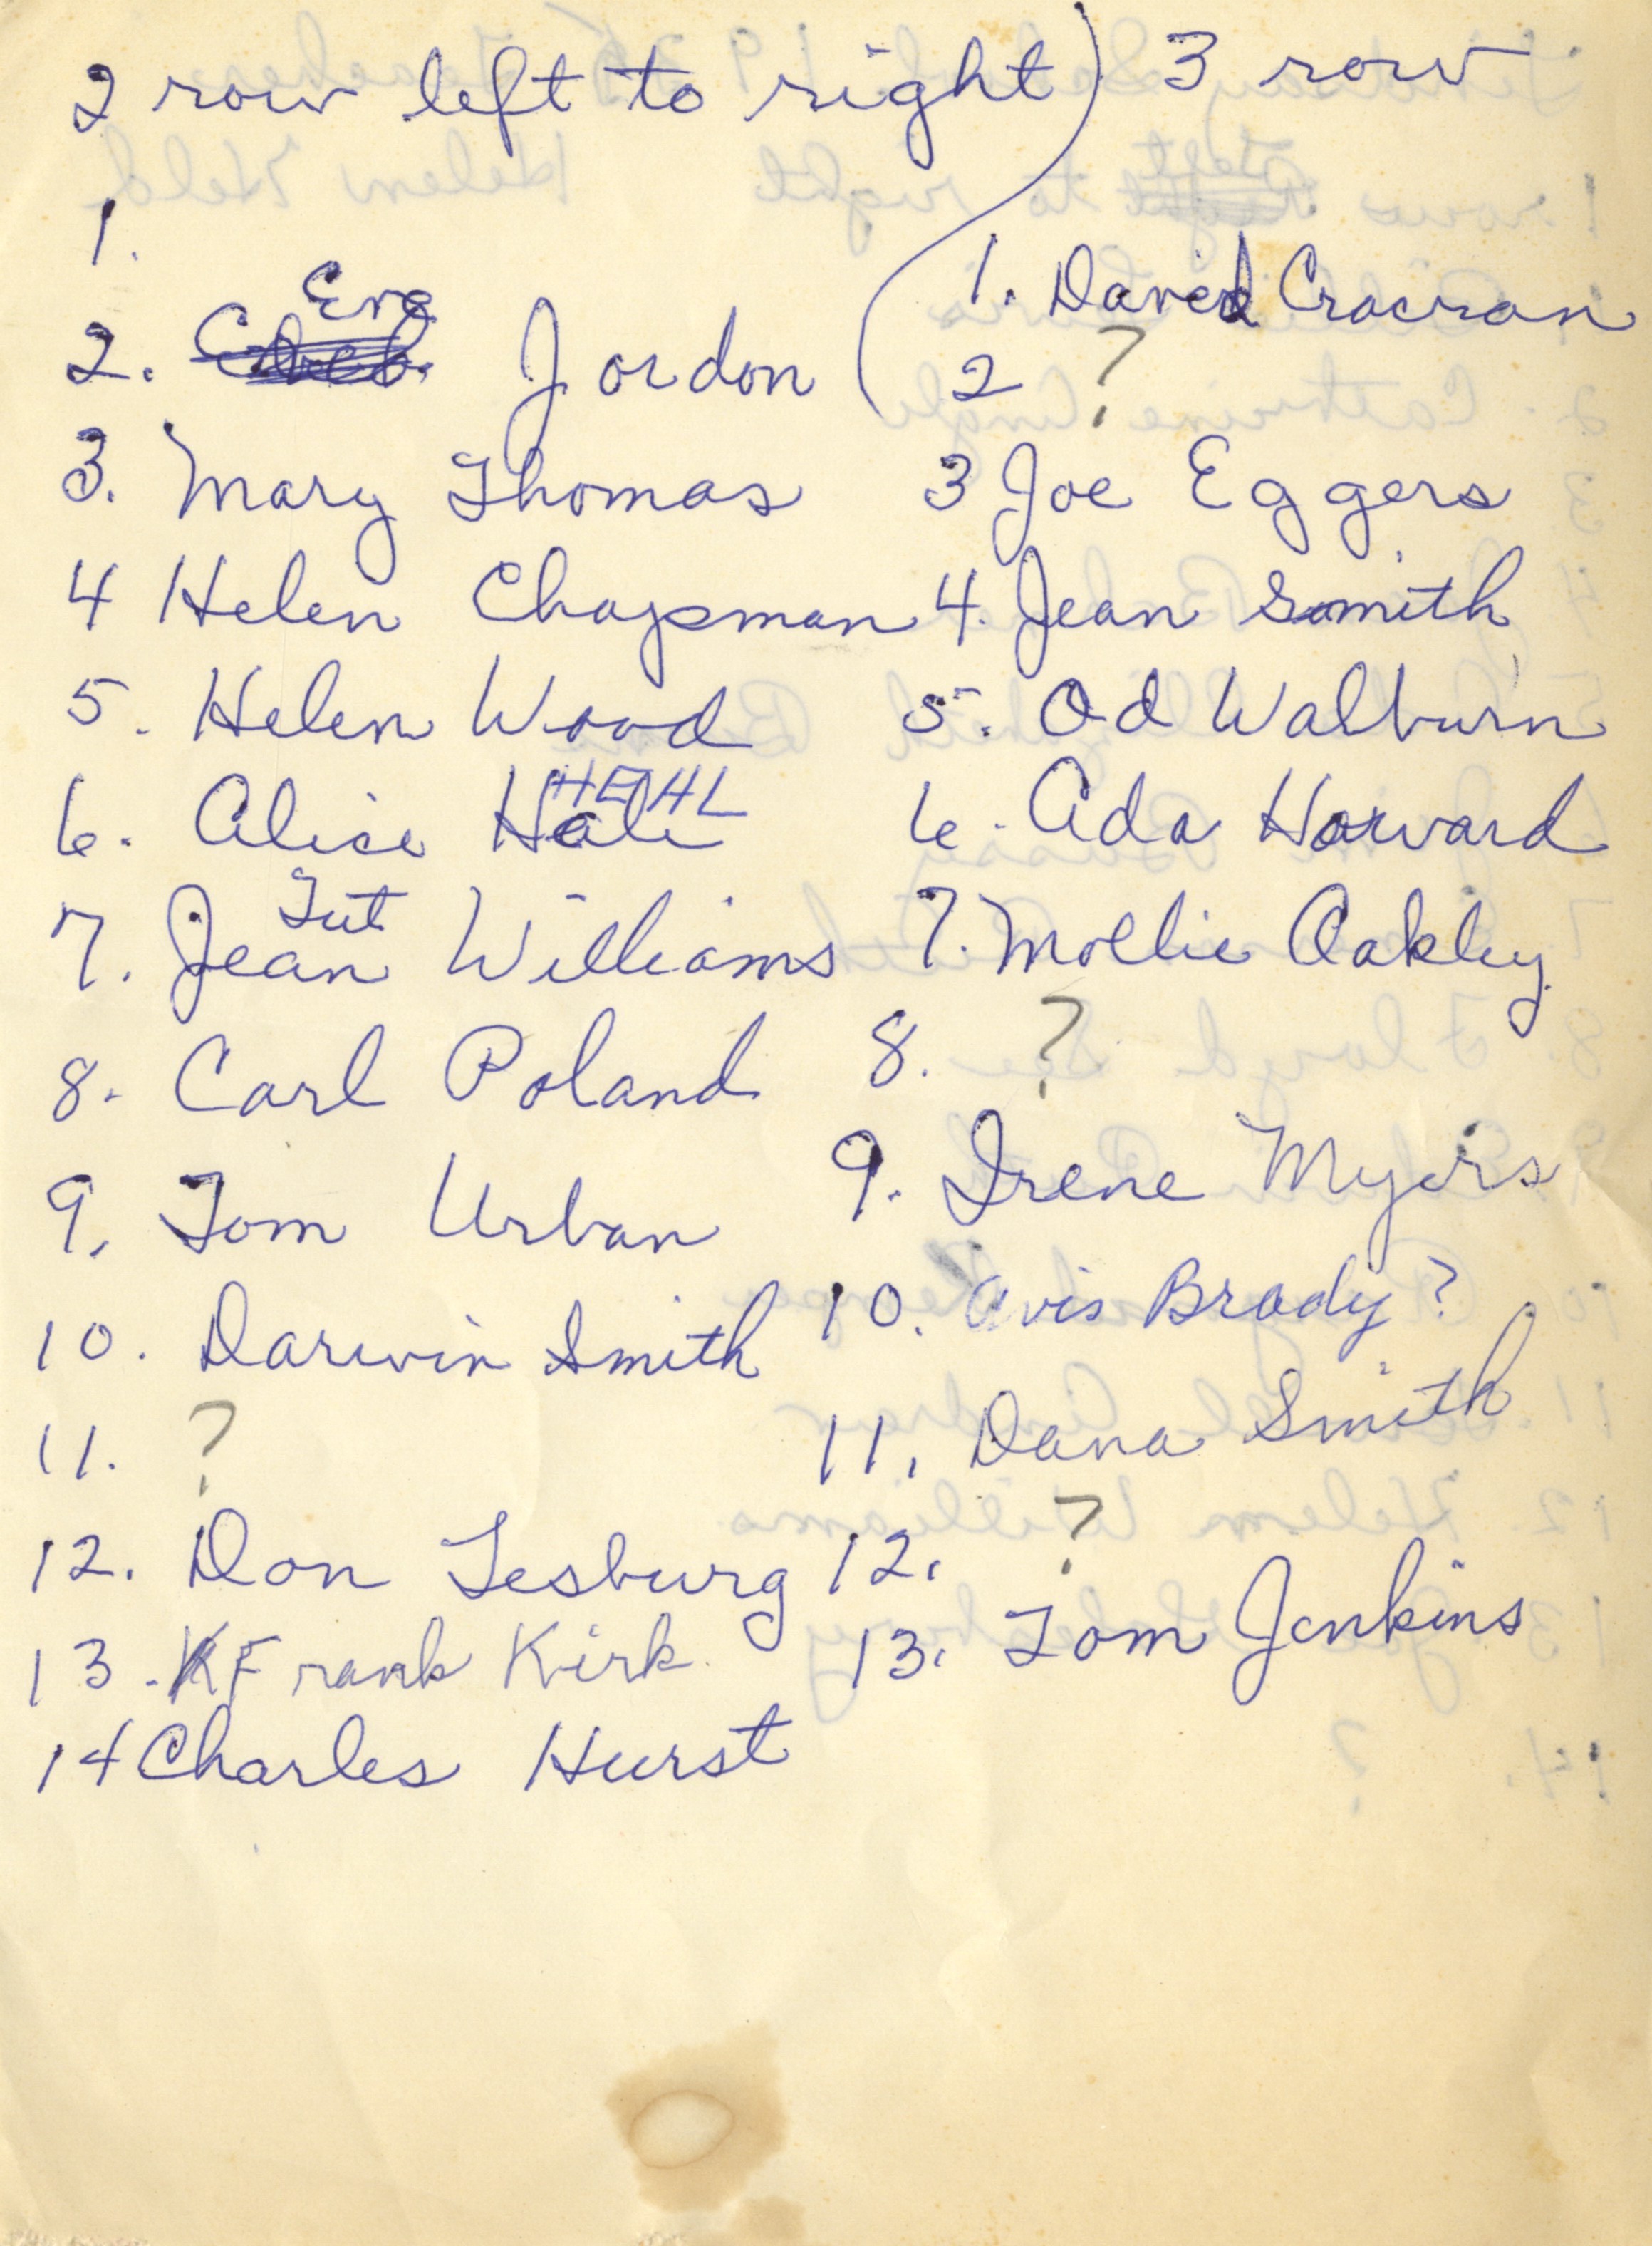 2 row left to right) 3 row
1.
2. Eva Jordon
3. Mary Thomas
4 Helen Chapman
5. Helen Wood
6. Alice Hale HEHL
7. Jean Tut Williams
8. Carl Poland
9. Tom Urban
10. Darwin Smith
11. ?
12. Don Lesburg
13. Frank Kirk
14 Charles Hurst
1. David Cracran
2 ?
3 Joe Eggers
4. Jean Smith
5. Od Walburn
6. Ada Harvard
7. Mollie Oakley
8. ?
9. Irene Myers
10. Avis Brady?
11. Dana Smith
12. ?
13. Tom Jenkins